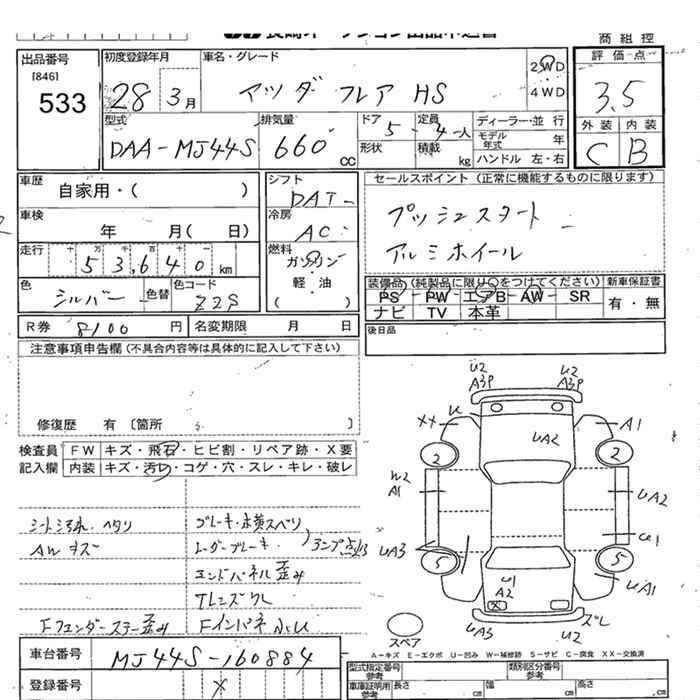 商組控
出品番号
[846]
533
初度登録年月
28 3月
車名・グレード
マツダ フレア HS
2WD
4WD
評価点
3.5
外装 内装
C B
型式
DAA-MJ44S
排気量
660 CC
ドア
5
定員
4人
形状
積載
kg
ディーラー・並行
モデル年式 年
ハンドル 左・右
車歴
自家用・( )
車検
年 月( 日)
走行
十 万 千 百 十 一
53,640 km
色
シルバー
色替
色コード
Z2S
シフト
DAT
冷房
AC
燃料
ガソリン
軽・油
( )
セールスポイント (正常に機能するものに限ります)
プッシュスタート
アルミホイール
装備品(純製品に限り○をつけてください)
PS PW エアB AW SR
ナビ TV 本革
新車保証書
有・無
R券 8100 円
名変期限 月 日
後日品
注意事項申告欄(不具合内容等は具体的に記入して下さい)
修復歴 有〔箇所 〕
検査員
記入欄
FW キズ・飛石・ヒビ割・リペア跡・X要
内装 キズ・汚レ・コゲ・穴・スレ・キレ・破レ
シート汚れ・ヘタリ
AWキズ
ブレーキ・
レーダーブレーキ
ランプ点灯
エンドパネル歪み
Tレンズワレ
Fフェンダーステー歪み
Fインパネ
車台番号
MJ44S-160884
登録番号
U2
A3P
U2
A3P
XX
A1
UA2
2
2
W2
A1
UA2
UA3
U1
5
5
U1
A2
X
UA1
UA3
U2
ズレ
スペア
A-キズ E-エクボ U-凹み W-補修跡 S-サビ C-腐食 XX-交換済
型式指定番号
参考
類別区分番号
参考
車庫証明用
参考
長さ cm
幅 cm
高さ cm